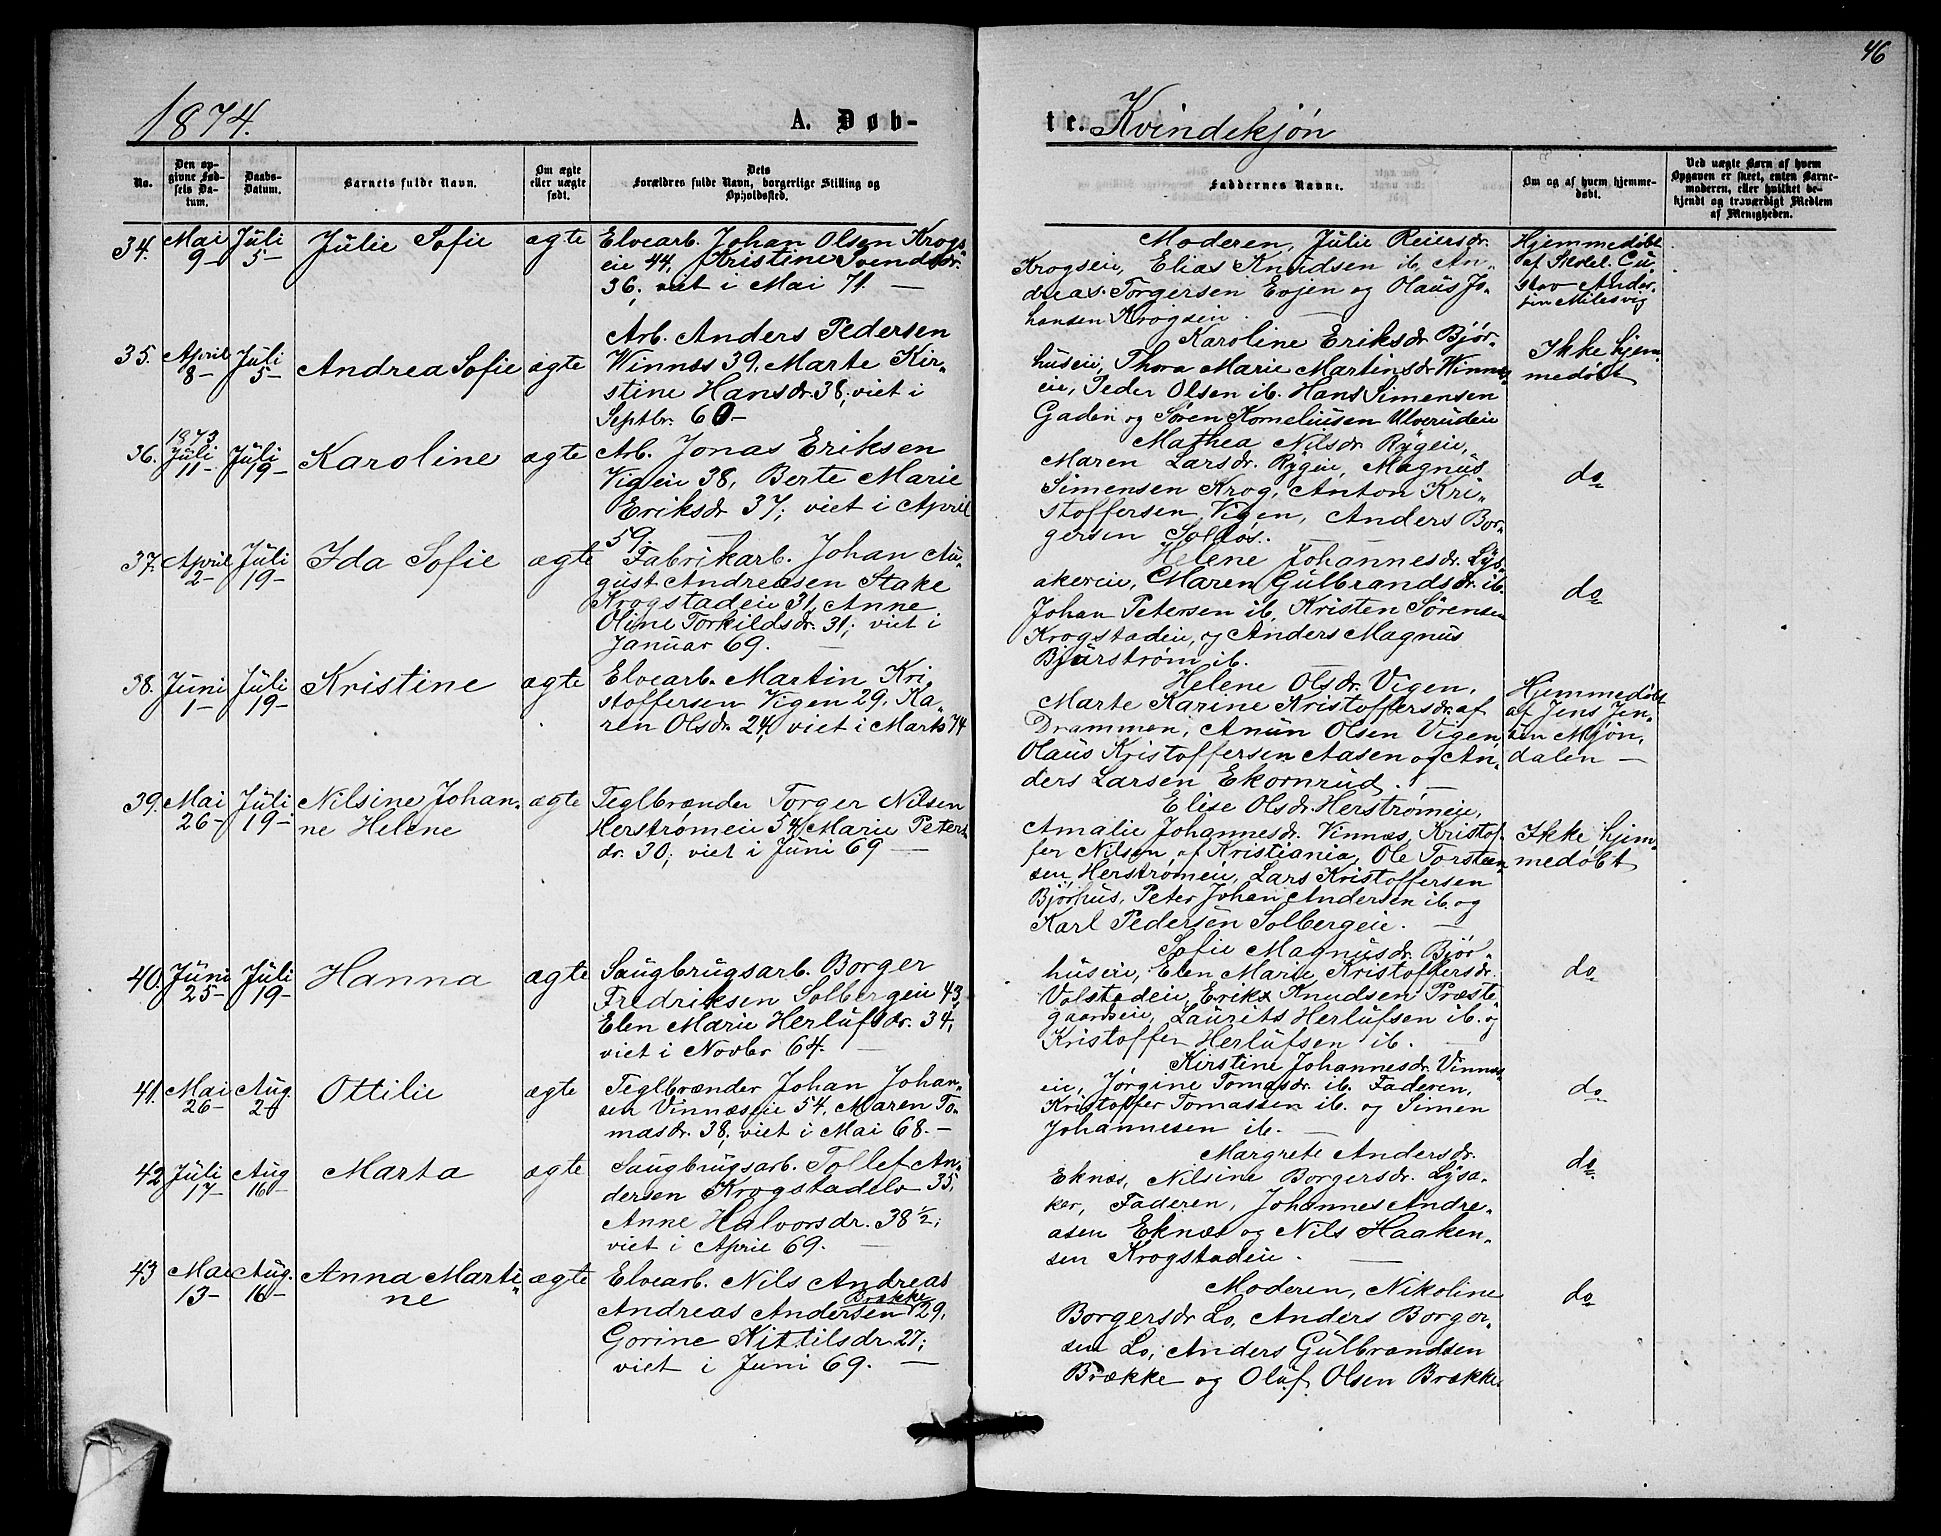 46
1874.
A. Døb-
te. Kvindekjøn
No.
Den op-
givne Fød-
sels Da-
tum.
Daabs-
Datum.
Barnets fulde Navn.
Om ægte
eller uægte
født.
Dets
Forældres fulde Navn, borgerlige Stilling og
Opholdssted.
Faddernes Navne.
Om og af hvem hjemme-
døbt.
Ved uægte Børn af hvem
Opgaven er skeet, enten Barne-
moderen, eller hvilket be-
kjendt og troværdigt Medlem
af Menigheden.
34. Mai 9- Juli 5- Julie Sofie ægte
Elvearb. Johan Olsen Krogs-
eie 44, Kristine Svendsdr.
36; viet i Mai 71. —
Moderen, Julie Reiersdr.
Krogseie, Elias Knudsen ib, An-
dreas Torgersen Evjen og Olaus Jo-
hansen Krogseie.
Hjemmedøbt
af
Anders-
sen Milesvig
35. April 8- Juli 5- Andrea Sofie ægte
Arb. Anders Pedersen
Winnæs 39, Marte Kir-
stine Hansdr. 38; viet i
Septbr. 60-
Karoline Eriksdr Bjør-
huseie, Thora Marie Martinsdr Winnes-
eie, Peder Olsen ib. Hans Simensen
Gaden og Søren Korneliusen Ulverudeie
Ikke hjem-
medøbt
36. 1873 Juli 11- Juli 19- Karoline ægte
Arb. Jonas Eriksen
Vigeie 38, Berte Marie
Eriksdr 37; viet i April
59. —
Mathea Nilsdr. Rygeie,
Maren Larsdr. Rygeie, Magnus
Simensen Krog, Anton Kri-
stoffersen Vigen, Anders Bor-
gersen Solløs.
do
37. April 2- Juli 19- Ida Sofie ægte
Fabrikarb. Johan Au-
gust Andreasen Stake
Krogstadeie 31, Anne
Oline Torkildsdr. 31; viet i
Januar 69. —
Helene Johannesdr. Lys-
akereie, Maren Gulbrandsdr. ib.
Johan Petersen ib, Kristen Sørensen
Krogstadeie, og Anders Magnus
Bjurstrøm ib.
do
38. Juni 1- Juli 19- Kristine ægte
Elvearb. Martin Kri-
stoffersen Vigen 29, Ka-
ren Olsdr. 24, viet i Marts 74
Helene Olsdr. Vigen,
Marte Karine Kristoffersdr. af
Drammen, Anun Olsen Vigen,
Olaus Kristoffersen Aasen og An-
ders Larsen Ekornrud. —
Hjemmedøbt
af Jens Jen-
sen Mjøn-
dalen —
39. Mai 26- Juli 19- Nilsine Johan-
ne Helene ægte
Teglbrænder Torger Nilsen
Herstrømeie 54, Marie Peters-
dr. 30; viet i Juni 69 —
Elise Olsdr. Herstrømeie,
Amalie Johannesdr. Vinnæs, Kristof-
fer Nilsen af Kristiania, Ole Torsten-
sen Herstrømeie, Lars Kristoffersen
Bjørhus, Peter Johan Andersen ib. og
Karl Pedersen Solbergeie. —
Ikke hjem-
medøbt
40. Juni 25- Juli 19- Hanna ægte
Saugbrugsarb. Borger
Fredriksen Solbergeie 43,
Elen Marie Herlufsdr. 34;
viet i Novbr 64. —
Sofie Magnusdr. Bjør-
huseie, Elen Marie Kristoffersdr.
Volstadeie, Erik Knudsen Præste-
gaardseie, Laurits Herlufsen ib. og
Kristoffer Herlufsen ib. —
do
41. Mai 26- Aug. 2- Ottilie ægte
Teglbrænder Johan Johan-
sen Vinnæseie 54, Maren To-
masdr. 38; viet i Mai 68. —
Kirstine Johannesdr. Vinnæs-
eie, Jørgine Tomasdr. ib. Faderen,
Kristoffer Tomassen ib. og Simen
Johannesen ib. —
do
42 Juli 17- Aug 16- Marta ægte
Saugbrugsarb. Tollef An-
dersen Krogstadelv 35,
Anne Halvorsdr. 38 1/2;
viet i April 69. —
Margrete Andersdr.
Eknæs, Nilsine Borgersdr. Lysa-
ker, Faderen, Johannes Andre-
asen Eknæs og Nils Haaken-
sen Krogstadeie.
do
43 Mai 13- Aug. 16- Anna Marti-
ne ægte
Elvearb. Nils Andreas
Andreas Andersen Brække 29,
Gorine Kittilsdr 27;
viet i Juni 69. —
Moderen, Nikoline
Borgersdr Lo, Anders Borger-
sen Lo, Anders Gulbrandsen
Brække og Oluf Olsen Brække
do